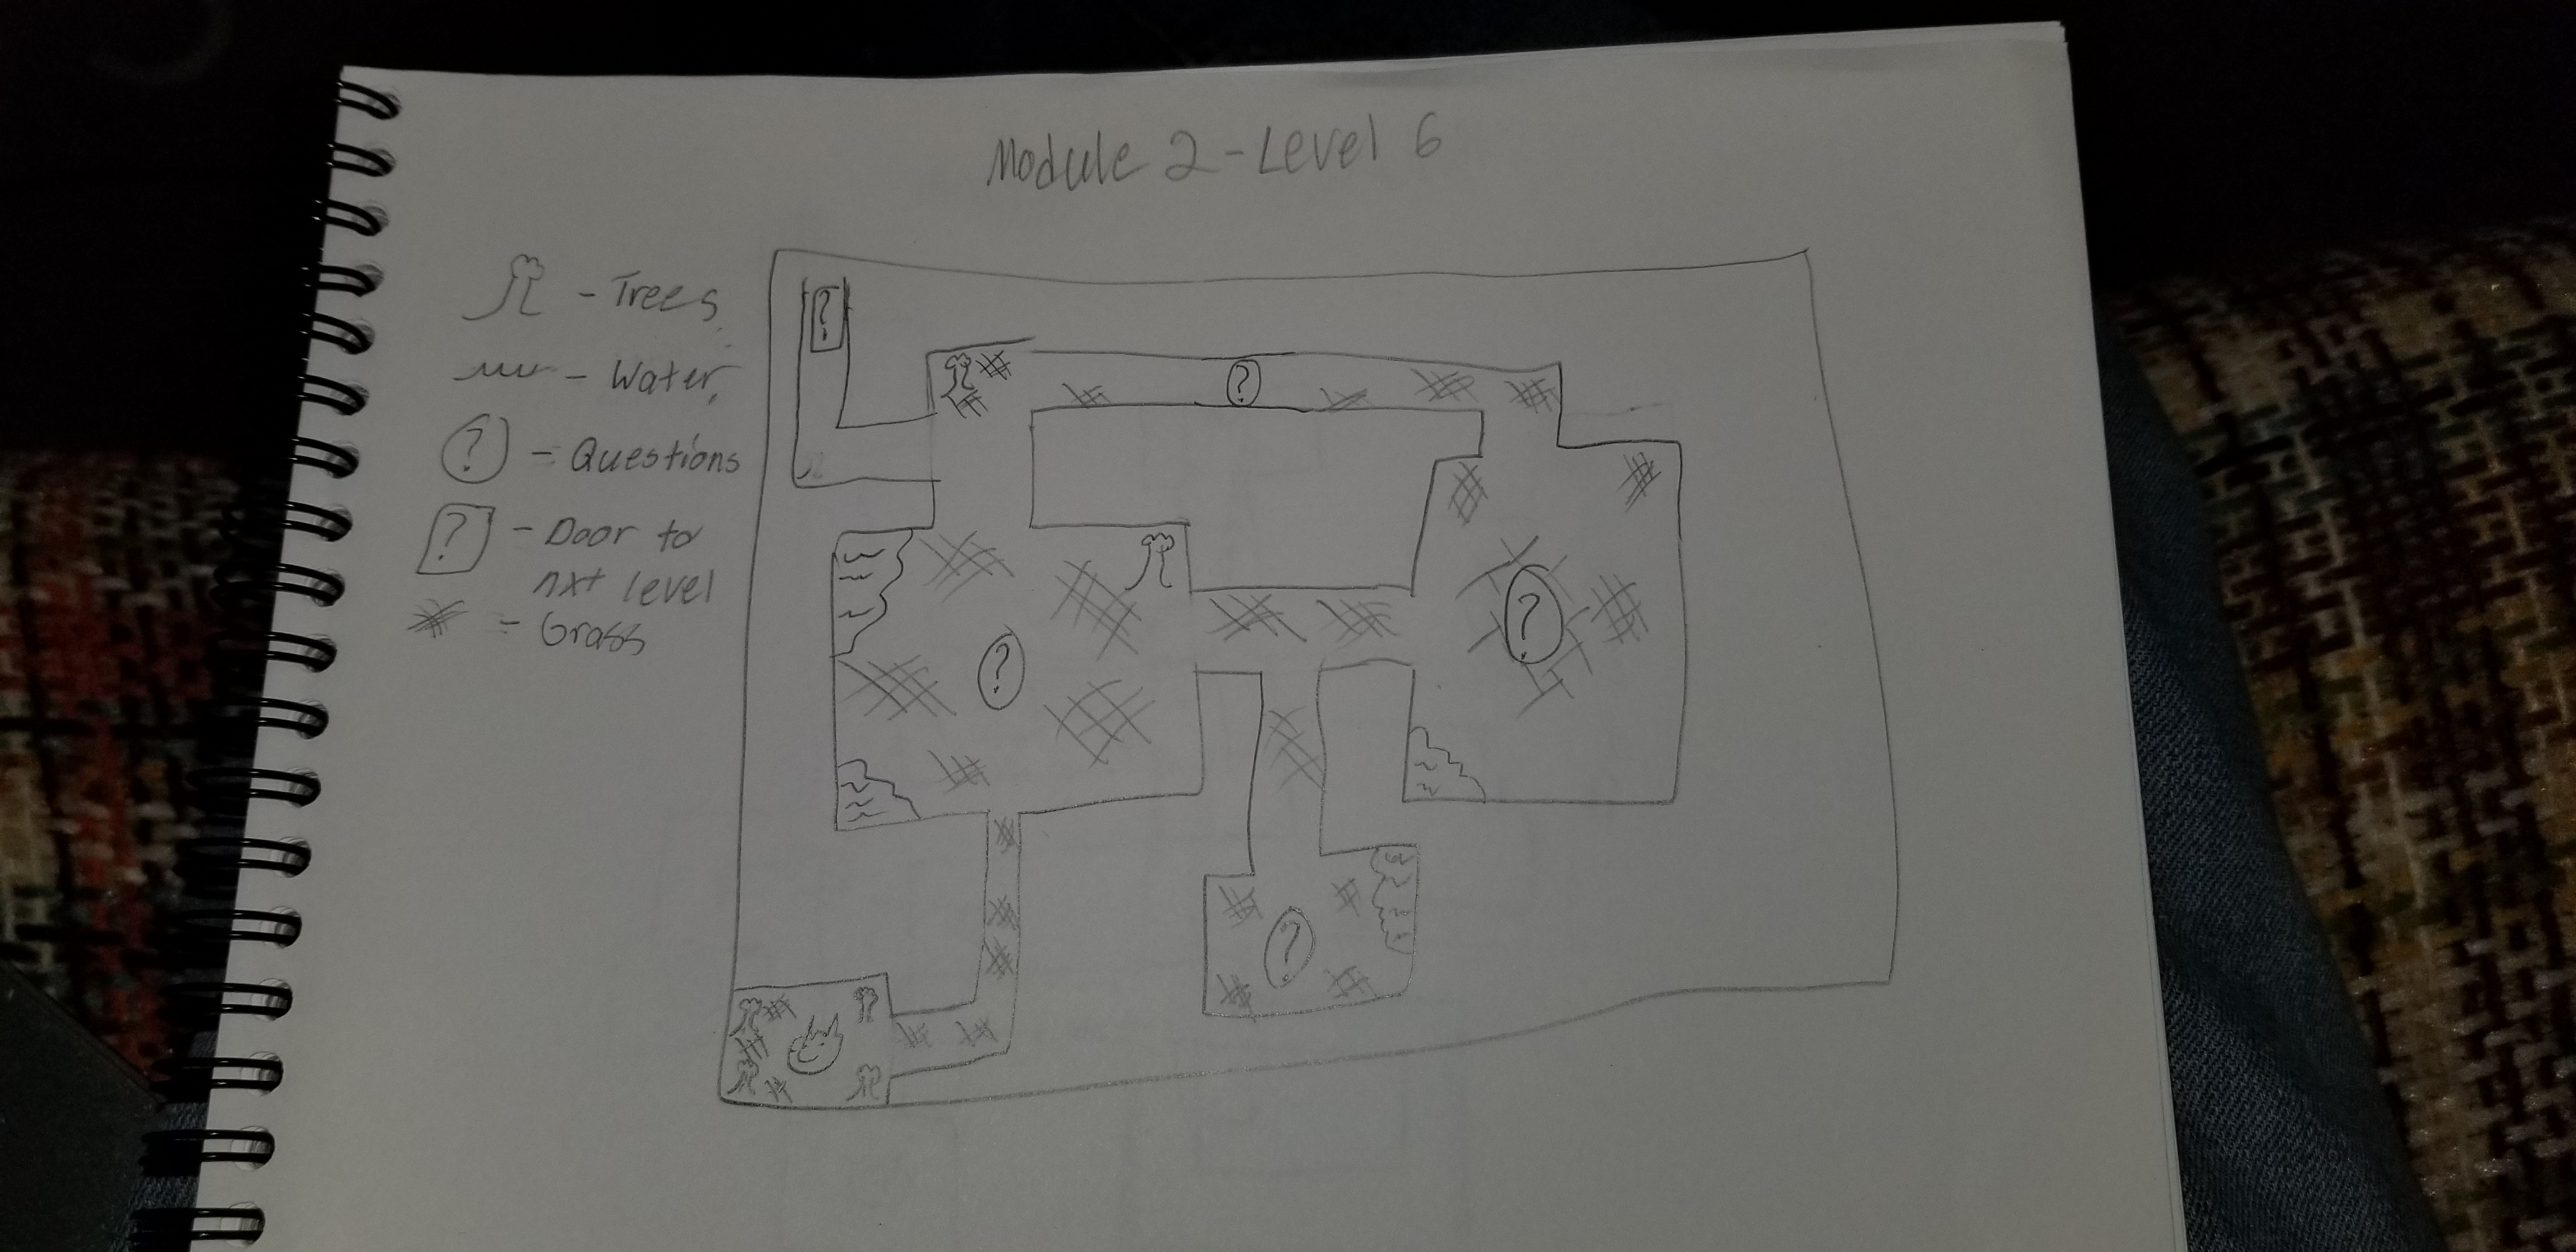 Module 2 - Level 6
- Trees
- Water
? - Questions
? - Door to
nxt level
= Grass
?
?
?
?
?